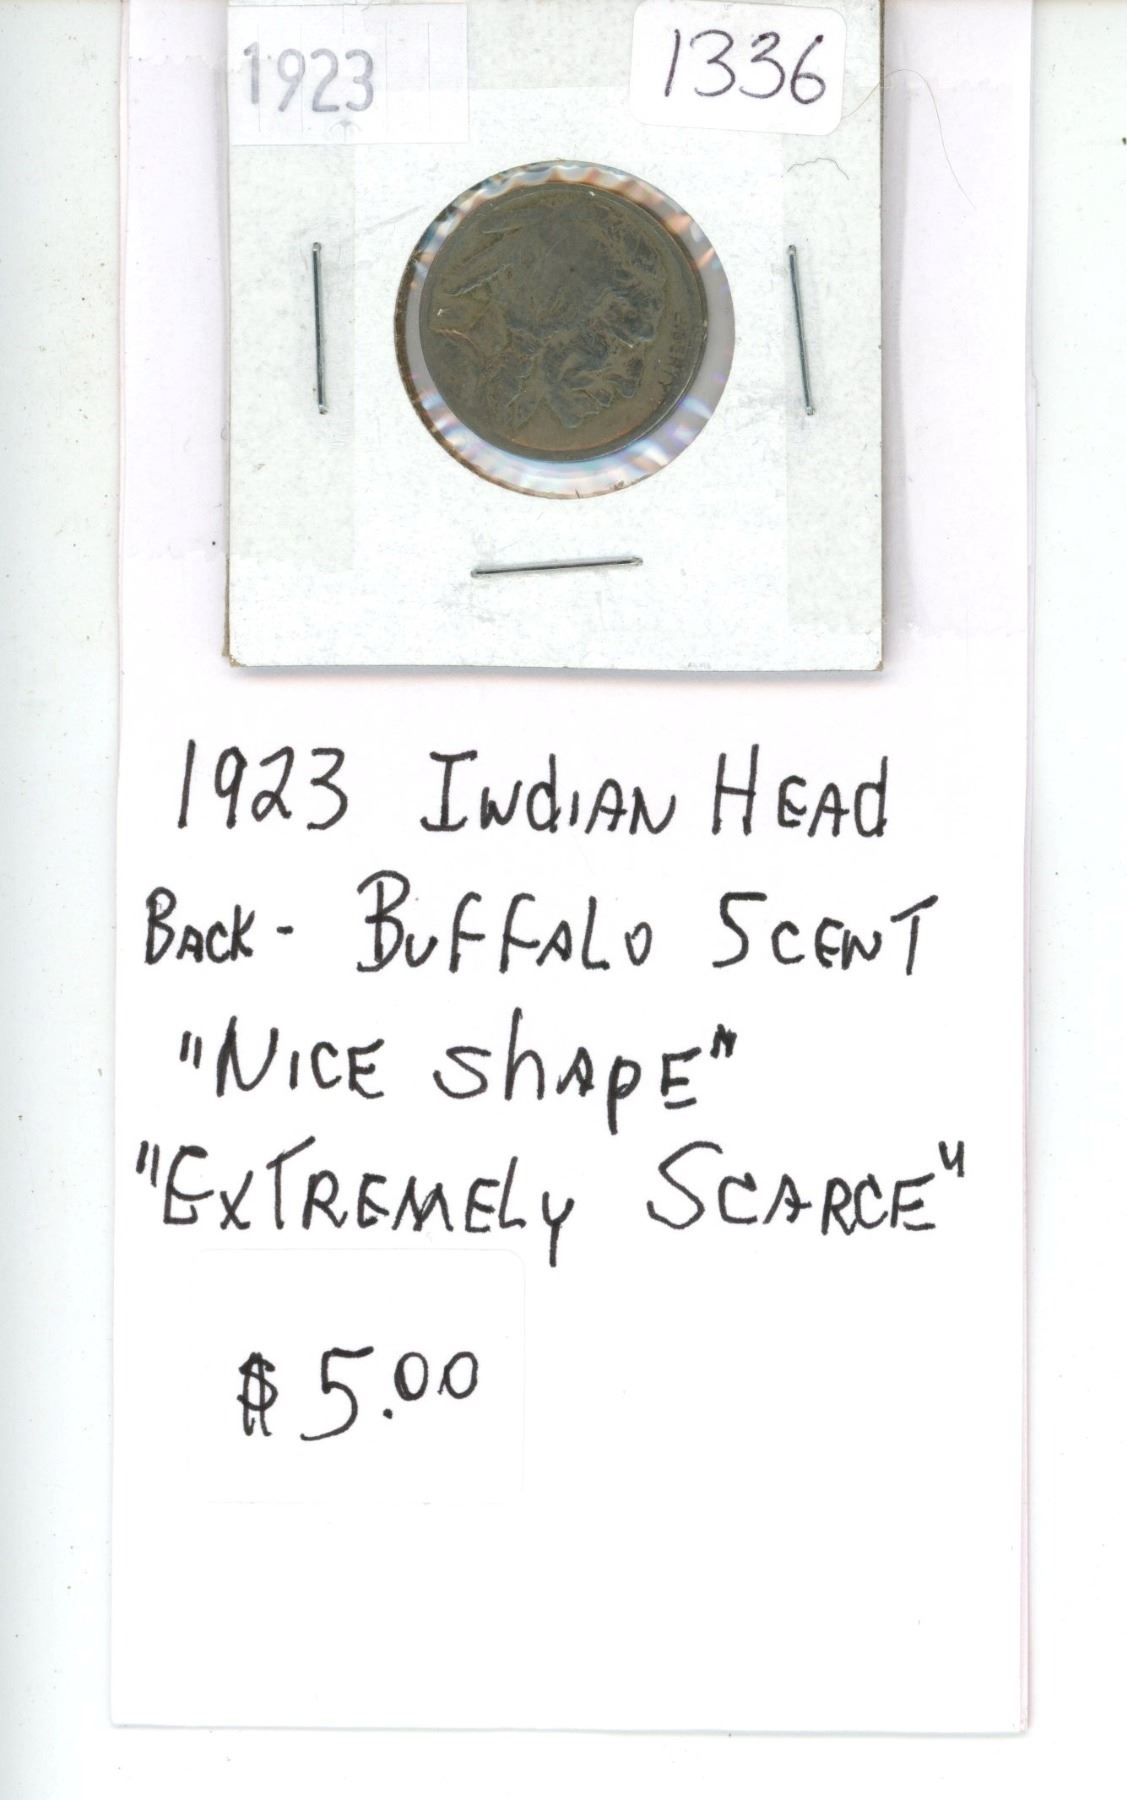 1923
1336
LIBERTY
1923 INdIAN HEAd
BACK - BUFFALO 5CENT
"NICE ShApE"
"EXTREMELy SCARCE"
$5.00